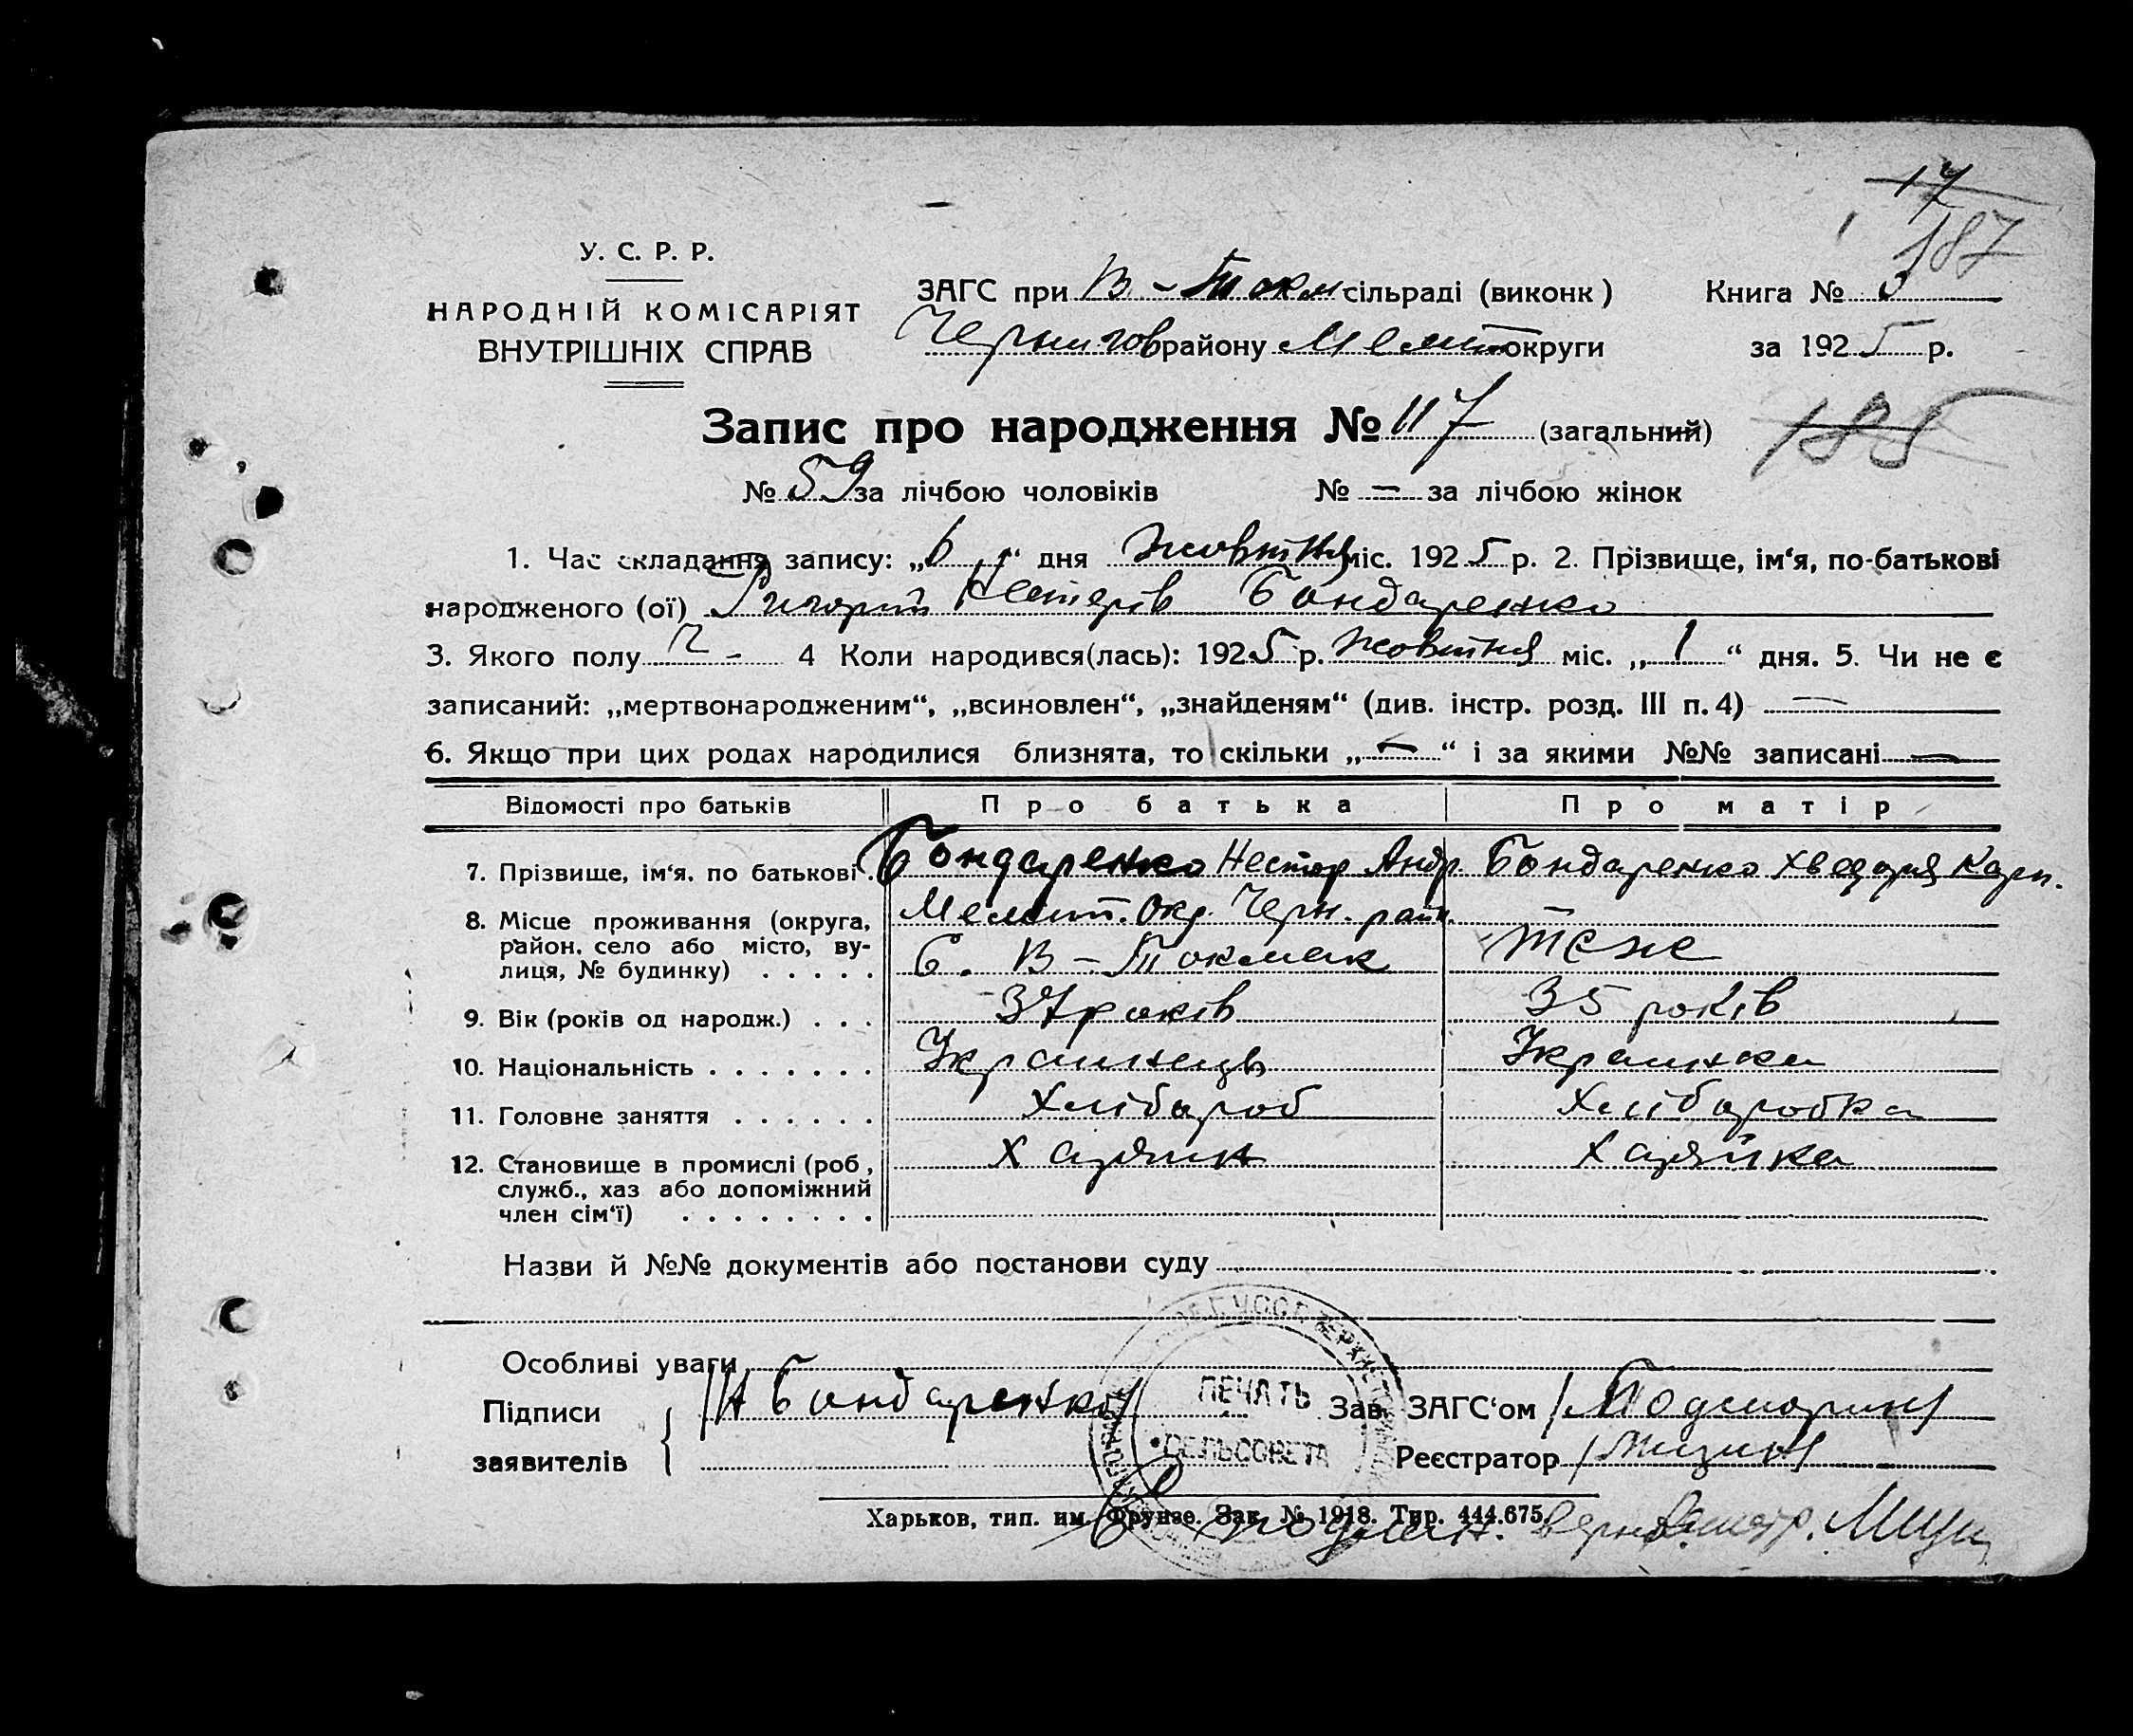 17
187
У. С. Р. Р.
НАРОДНІЙ КОМІСАРІЯТ
ВНУТРІШНІХ СПРАВ
ЗАГС при В-Токм сільраді (виконк)
Книга № 3
Черниговрайону Меліт округи
за 1925 р.
Запис про народження № 117 (загальний)
185
№ 59 за лічбою чоловіків № — за лічбою жінок
1. Час складання запису: „6“ дня жовтня міс. 1925 р. 2. Прізвище, ім‘я, по-батькові
народженого (ої) Григорій Нестерів Бондаренко
3. Якого полу ч - 4 Коли народився(лась): 1925 р. жовтня міс. „1“ дня. 5. Чи не є
записаний: „мертвонародженим“, „всиновлен“, „знайденям“ (див. інстр. розд. III п. 4) —
6. Якщо при цих родах народилися близнята, то скільки „—“ і за якими №№ записані —
Відомості про батьків Про батька Про матір
7. Прізвище, ім‘я, по батькові . Бондаренко Нестор Андр. Бондаренко Хведора Карп.
8. Місце проживання (округа, Меліт. Окр. Черн. райн.
район, село або місто, ву-
лиця, № будинку) . . . . . С. В-Токмак теже
9. Вік (років од народж.) . . . 37 років 35 років
10. Національність . . . . . . . Українець Українка
11. Головне заняття . . . . . . Хлібароб Хлібаробка
12. Становище в промислі (роб, Хазяин Хазяйка
служб., хаз або допоміжний
член сім‘ї) . . . . . . . .
Назви й №№ документів або постанови суду
Особливі уваги
Підписи /Н Бондаренко/ Зав. ЗАГС‘ом /Подмарин/
заявителів Реєстратор /Мицик/
ПЕЧАТЬ
СЕЛЬСОВЕТА
Харьков, тип. им. Фрунзе. Зак. № 1918. Тир. 444.675